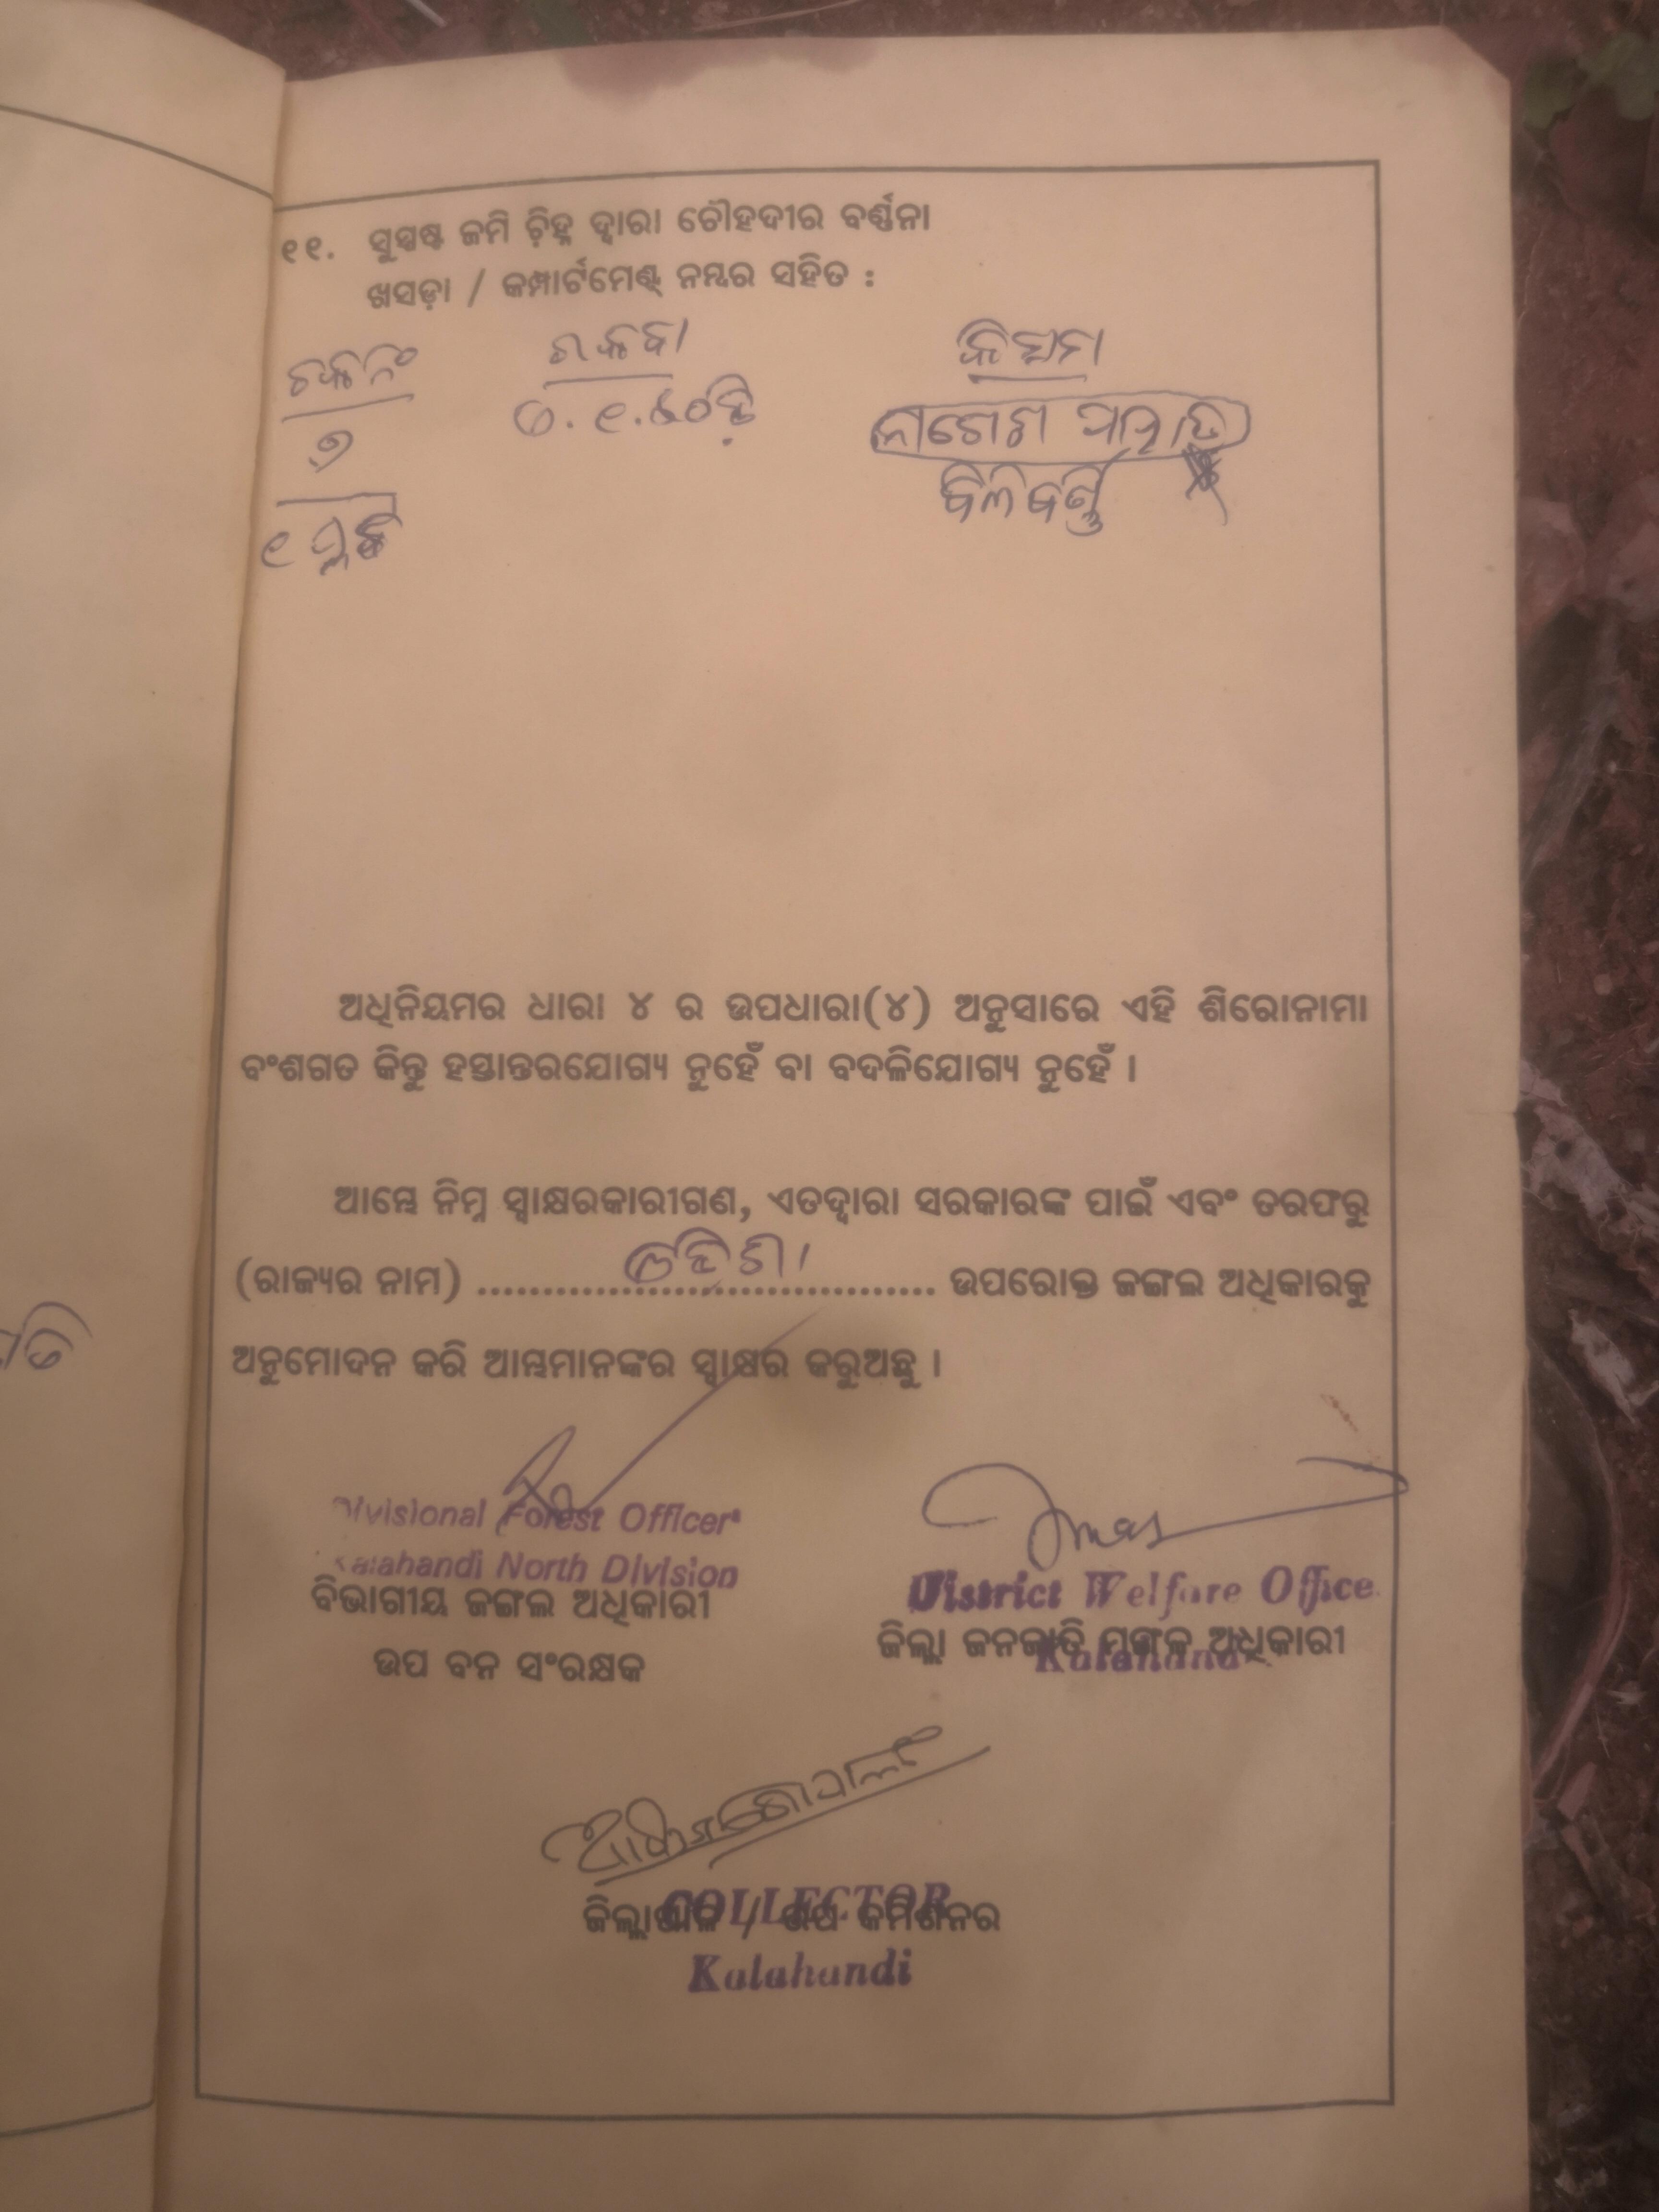 ୧୧. ସୁସ୍ପଷ୍ଟ ଜମି ଚ଼ିହ୍ନ ଦ୍ୱାରା ଚୌହଦୀର ବର୍ଣ୍ଣନା
ଖସଡ଼ା / କମ୍ପାର୍ଟମେଣ୍ଟ୍ ନମ୍ୱର ସହିତ :
ରକବା
କିସମ
ଅଧିନିୟମର ଧାରା ୪ ର ଉପଧାରା(୪) ଅନୁସାରେ ଏହି ଶିରୋନାମା
ବଂଶଗତ କିନ୍ତୁ ହସ୍ତାନ୍ତରଯୋଗ୍ୟ ନୁହେଁ ବା ବଦଳିଯୋଗ୍ୟ ନୁହେଁ ।
ଆମ୍ଭେ ନିମ୍ନ ସ୍ୱାକ୍ଷରକାରୀଗଣ, ଏତଦ୍ୱାରା ସରକାରଙ୍କ ପାଇଁ ଏବଂ ତରଫରୁ
(ରାଜ୍ୟର ନାମ) ଓଡ଼ିଶା ଉପରୋକ୍ତ ଜଙ୍ଗଲ ଅଧିକାରକୁ
ଅନୁମୋଦନ କରି ଆମ୍ଭମାନଙ୍କର ସ୍ୱାକ୍ଷର କରୁଅଛୁ ।
Divisional Forest Officer
Kalahandi North Division
ବିଭାଗୀୟ ଜଙ୍ଗଲ ଅଧିକାରୀ
ଉପ ବନ ସଂରକ୍ଷକ
District Welfare Office
ଜିଲ୍ଲା ଜନଜାତି ମଙ୍ଗଳ ଅଧିକାରୀ
Kalahandi
COLLECTOR
ଜିଲ୍ଲାପାଳ / ଉପ କମିଶନର
Kalahandi